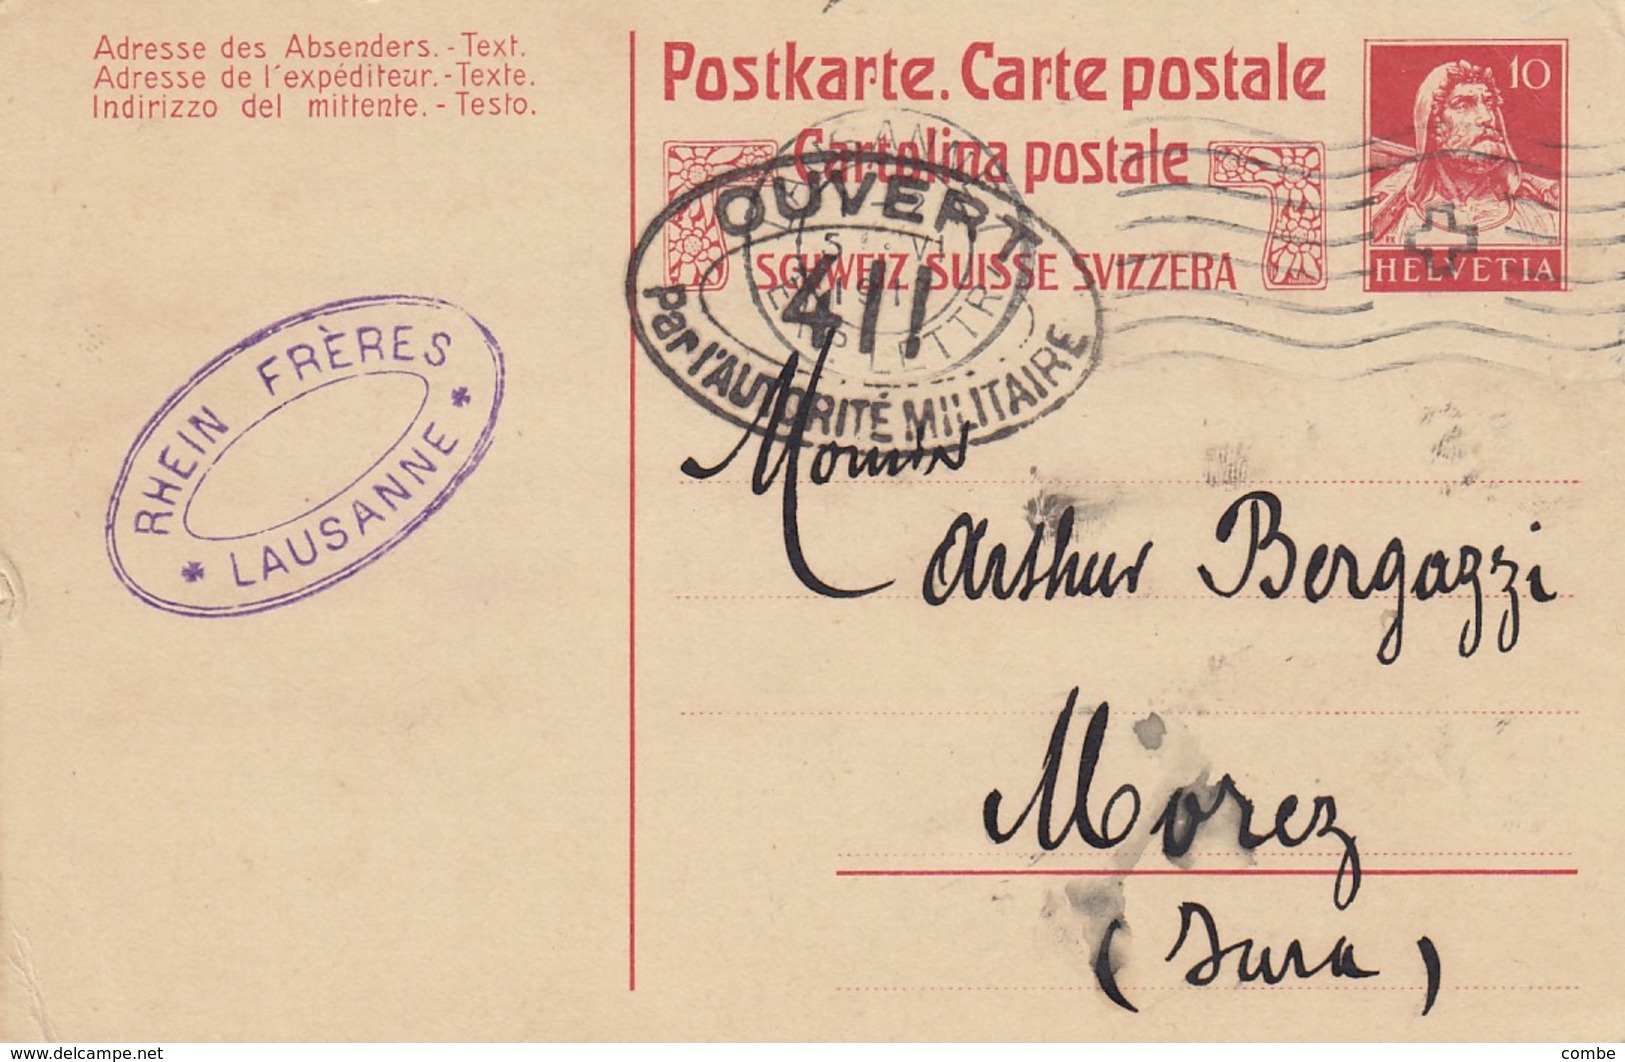 Adresse des Absenders.-Text.
Adresse de l'expéditeur.-Texte.
Indirizzo del mittente.-Testo.
Postkarte. Carte postale
Cartolina postale
SCHWEIZ SUISSE SVIZZERA
10
HELVETIA
OUVERT
411
Par l'AUTORITÉ MILITAIRE
RHEIN FRÈRES
LAUSANNE
Arthur Bergazzi
Morez
(Jura)
www.delcampe.net
combe